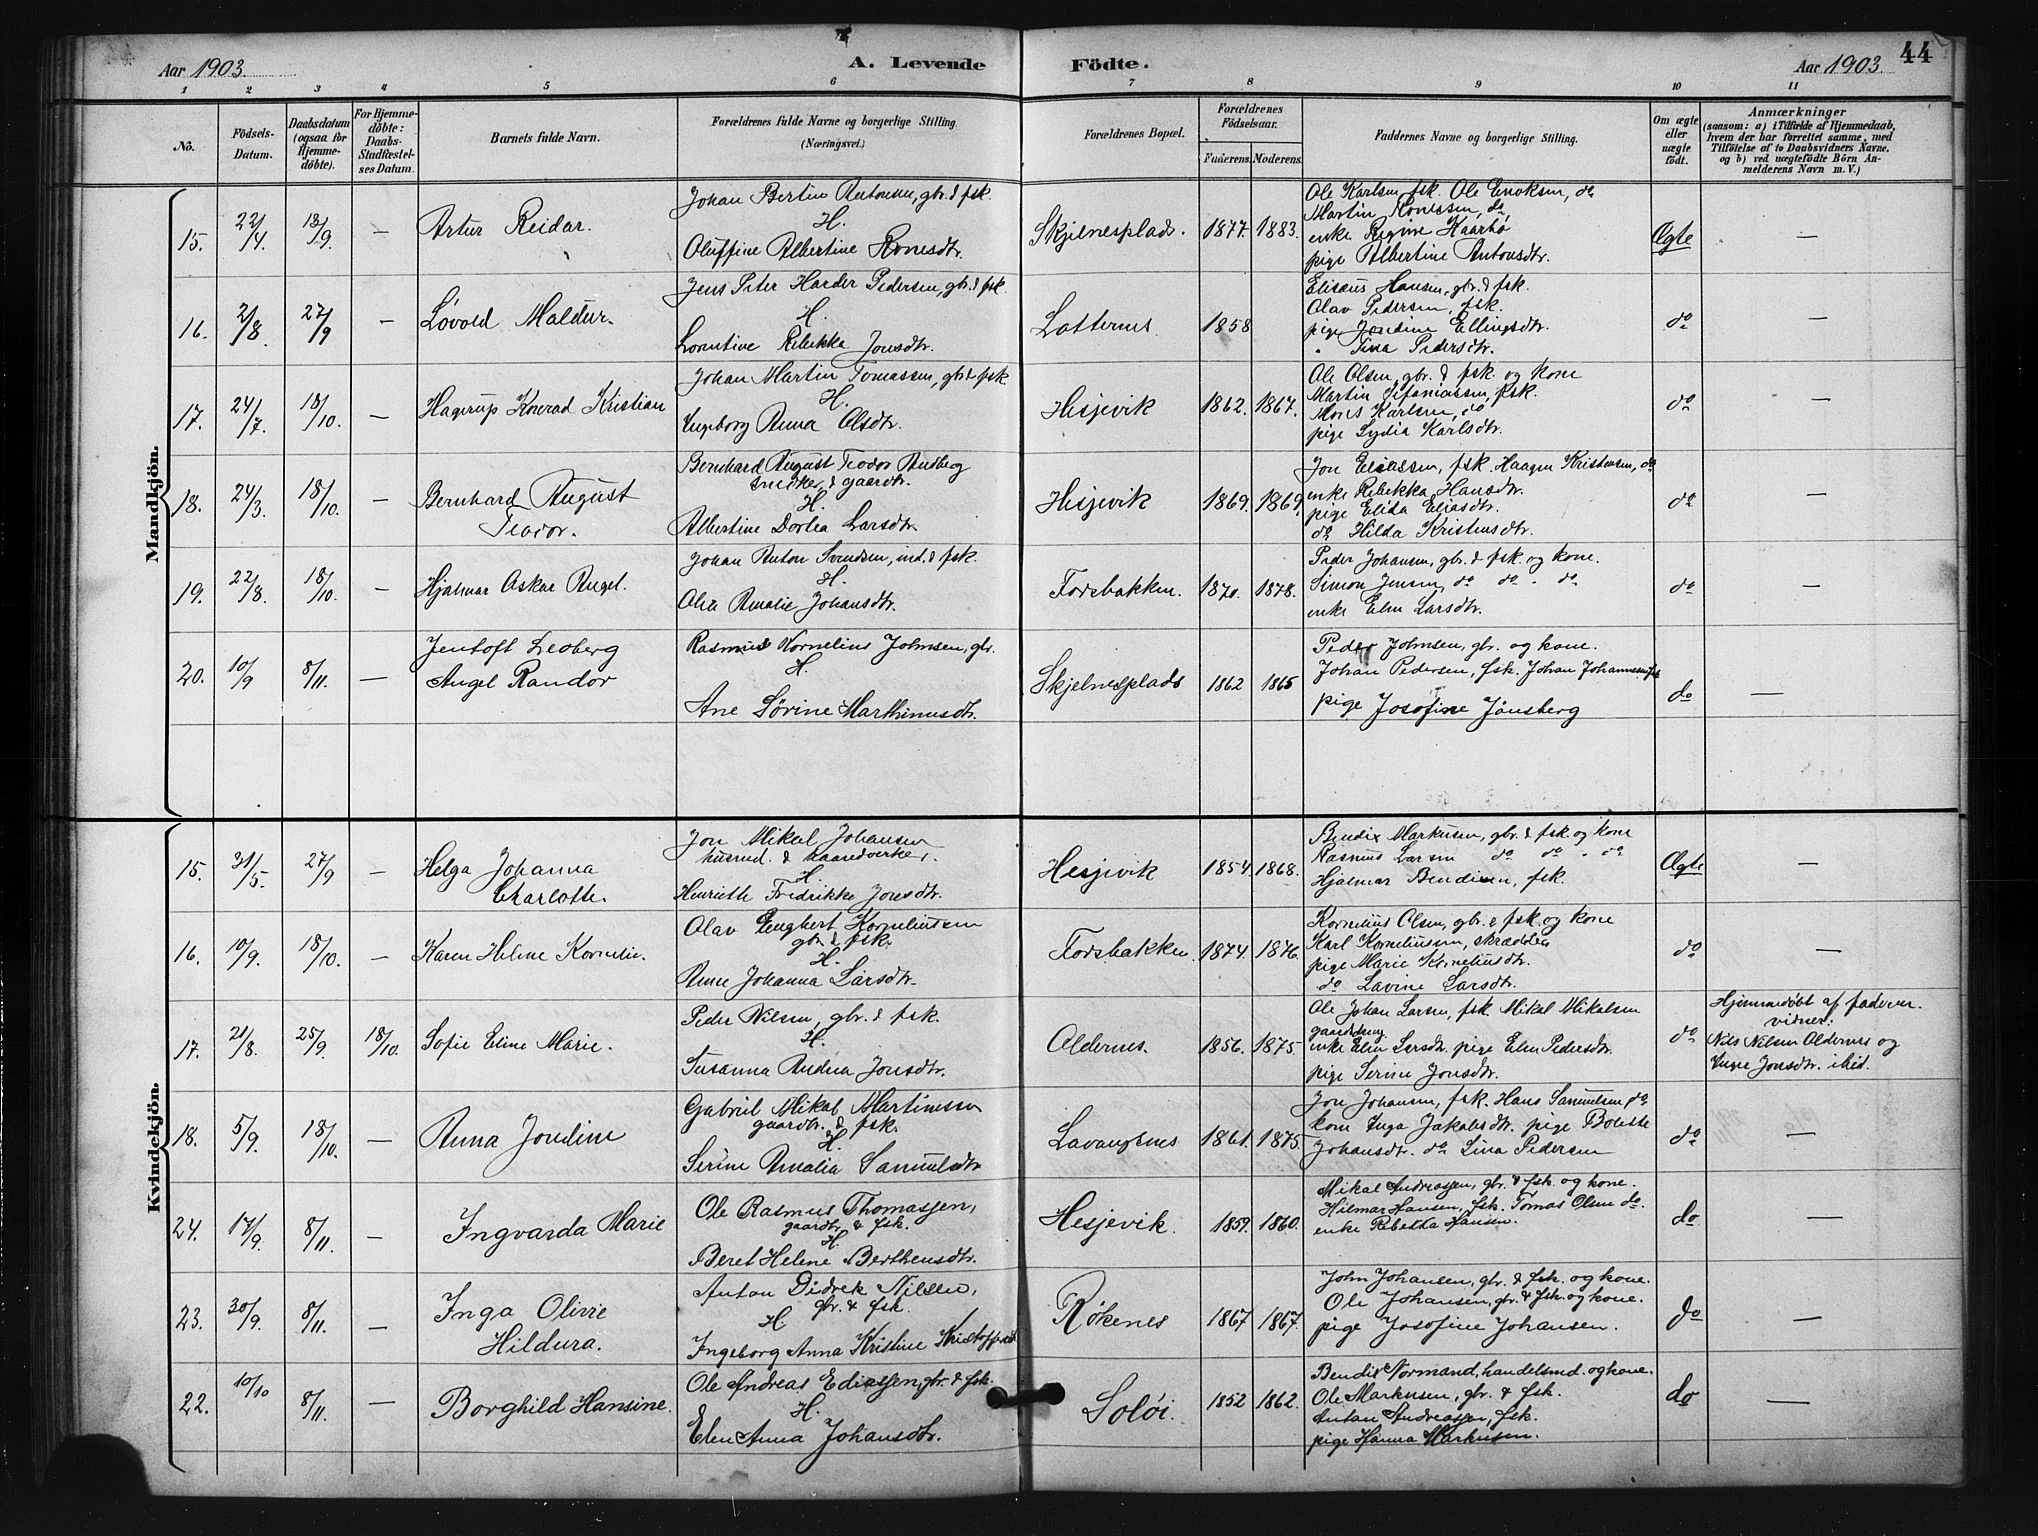 Aar 1903. A. Levende Födte. Aar 1903. 44
1 2 3 4 5 6 7 8 9 10 11
No. Födsels-Datum. Daabsdatum (ogsaa for Hjemme-döbte). For Hjemme-döbte: Daabs-Stadfestel-ses Datum. Barnets fulde Navn. Forældrenes fulde Navne og borgerlige Stilling (Næringsvei.) Forældrenes Bopæl. Forældrenes Födselsaar. Faderens. Moderens. Faddernes Navne og borgerlige Stilling. Om ægte eller uægte födt. Anmærkninger (saasom: a) i Tilfælde af Hjemmedaab, hvem der har forrettet samme, med Tilföielse af to Daabsvidners Navne, og b) ved uægtefödte Börn An-melderens Navn m.V.)
Mandkjön.
15. 22/4. 13/9. — Artur Reidar. Johan Bertin Antonsen, gbr. & fsk.
H.
Oluffine Albertine Ronesdtr. Skjelnesplads. 1877. 1883. Ole Karlsen, fsk. Ole Enoksen, do
Martin Ronessen, do
enke Regine Kaarbø
pige Albertine Antonsdtr. Ægte —
16. 2/8. 27/9 — Løvold Maldur. Jens Peter Harder Pedersen, gbr. & fsk.
H.
Lorentine Rebekka Jonsdtr. Latternes 1858 Elisæus Hansen, gbr. & fsk.
Olav Pedersen, fsk.
pige Jondine Ellingsdtr.
" Tina Pedersdtr. do —
17. 24/7. 18/10. — Hagerup Konrad Kristian Johan Martin Tomassen, gbr. & fsk
H.
Ingeborg Anna Olsdtr. Hesjevik 1862. 1867. Ole Olsen, gbr. & fsk. og kone
Martin Sefaniassen, fsk.
Mons Karlsen, do
pige Lydia Karlsdtr. do —
18. 24/3. 18/10. — Bernhard August
Teodor. Bernhard August Teodor Rudberg
snedker & gaardbr.
H.
Albertine Dortea Larsdtr. Hesjevik 1869. 1869. Jon Eliassen, fsk. Haagen Kristensen, do
enke Rebekka Hansdtr.
pige Elida Eliasdtr.
do Hilda Kristensdtr. do —
19. 22/8. 18/10. — Hjalmar Oskar Angel. Johan Anton Svendsen, ind. & fsk.
H.
Olea Amalie Johansdtr. Forsbakken. 1870. 1878. Peder Johansen, gbr. & fsk. og kone.
Simon Jensen, do do " do
enke Elen Larsdtr. do —
20. 10/9 8/11. — Jentoft Leoberg
Angel Randor Rasmus Kornelius Johnsen, gbr.
H.
Ane Sørine Marthinusdtr. Skjelnesplads 1862 1865 Peder Johnsen, gbr. og kone.
Johan Pedersen, fsk. Johan Johannessen fsk
pige Josofine Jönsberg do —
Kvindekjön.
15. 31/5. 27/9 — Helga Johanna
Charlotte. Jon Mikal Johansen
husmd. & haandverker.
H.
Henriette Fredrikke Jonsdtr. Hesjevik 1854. 1868. Bendix Markusen, gbr. & fsk og kone
Rasmus Larsen do do " do
Hjalmar Bendixen, fsk. Ægte —
16. 10/9. 18/10. — Karen Helene Kornelie. Olav Engbert Korneliussen
gbr. & fsk.
H.
Anne Johanna Larsdtr. Forsbakken. 1874. 1876. Kornelius Olsen, gbr. & fsk. og kone
Karl Korneliussen, skrædder
pige Marie Korneliusdtr.
do Lavine Larsdtr. do —
17. 21/8. 25/9. 18/10. Sofie Eline Marie. Peder Nilsen, gbr. & fsk.
H.
Susanna Andrea Jonsdtr. Oldernes. 1856. 1875. Ole Johan Larsen, fsk. Mikal Mikalsen
gaarddreng
enke Elen Larsdtr. pige Elen Pedersdtr.
pige Serine Jonsdtr. do Hjemmedøbt af faderen.
vidner:
Nils Nilsen Oldernes og
Inger Jonsdtr. ibid.
18. 5/9. 18/10. — Anna Jondine Gabriel Mikal Martinessen
gaardbr. & fsk.
H.
Serine Amalia Samuelsdtr Lavangsnes 1861. 1875. Jon Johansen, fsk. Hans Samuelsen do
kone Inga Jakobsdtr. pige Bolette
Johansdtr. do Lina Pedersen do —
24. 17/9. 8/11. — Ingvarda Marie Ole Rasmus Thomassen,
gaardbr. & fsk.
H.
Beret Helene Berthensdtr. Hesjevik. 1859. 1860. Mikal Andreassen, gbr. & fsk. og kone.
Hilmar Hansen, fsk. Tomas Olsen do.
enke Rebekka Hansen. do —
23. 30/9. 8/11. — Inga Olivie
Hildura. Anton Didrek Nilsen,
gbr. & fsk.
H
Ingeborg Anna Kristine Kristoffersdt Røkenes 1867 1867. John Johansen, gbr. & fsk. og kone.
Ole Johansen, gbr. & fsk. og kone.
pige Josofine Johansen. do —
22. 10/10 8/11. — Borghild Hansine. Ole Andreas Ediassen, gbr. & fsk.
H.
Elen Anna Johansdtr. Soløi. 1852 1862. Bendix Normand, handelsmd. og kone.
Ole Markusen, gbr. & fsk.
Anton Andreassen, fsk.
pige Hanna Markusen. do —